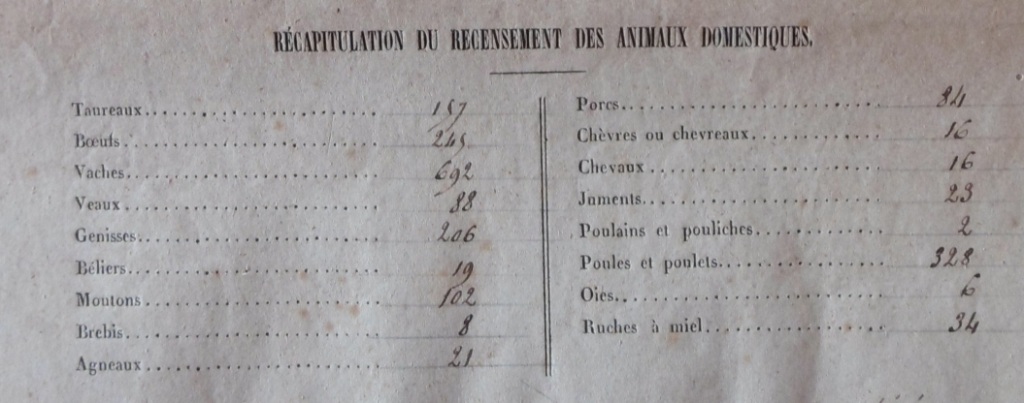 RÉCAPITULATION DU RECENSEMENT DES ANIMAUX DOMESTIQUES.
Taureaux 157
Bœufs 245
Vaches 692
Veaux 88
Genisses 206
Béliers 19
Moutons 102
Brebis 8
Agneaux 21
Porcs 84
Chèvres ou chevreaux 16
Chevaux 16
Juments 23
Poulains et pouliches 2
Poules et poulets 328
Oies 6
Ruches à miel 34